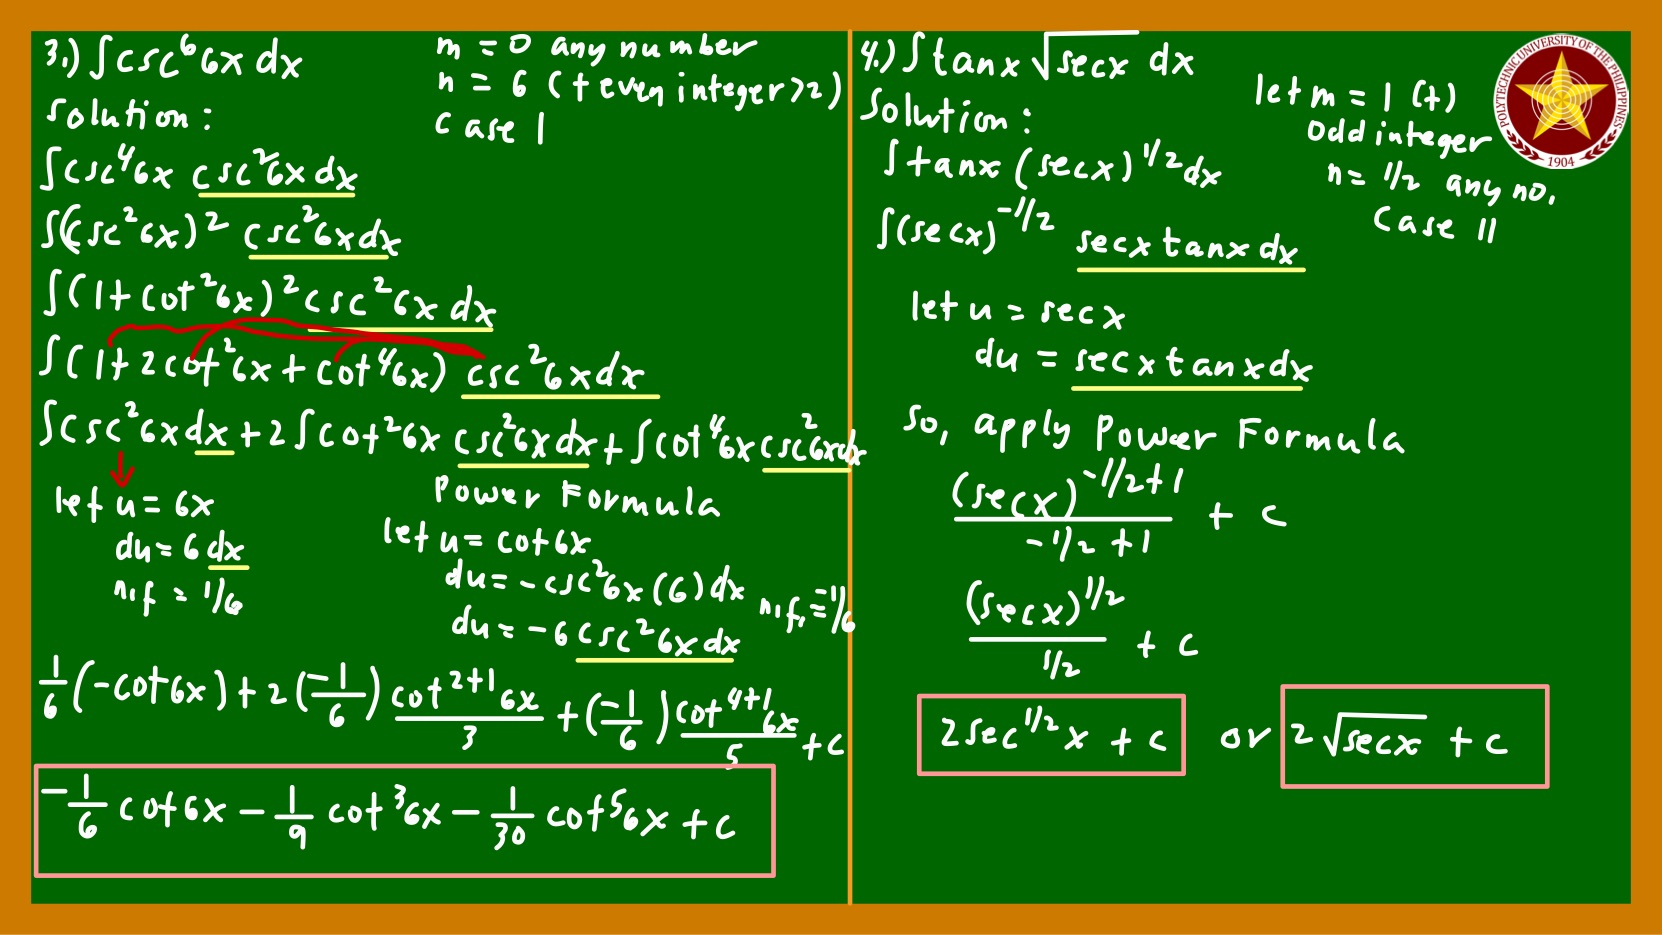 3.) ∫csc⁶6x dx
m = 0 any number
n = 6 (+ even integer >2)
case I
Solution:
∫csc⁴6x csc²6x dx
∫(csc²6x)² csc²6x dx
∫(1+cot²6x)² csc²6x dx
∫(1+2cot²6x+cot⁴6x) csc²6x dx
∫csc²6x dx + 2∫cot²6x csc²6x dx + ∫cot⁴6x csc²6x dx
let u = 6x
du = 6 dx
n.f = 1/6
Power Formula
let u = cot6x
du = -csc²6x (6) dx
du = -6 csc²6x dx
n.f. = -1/6
1/6 (-cot6x) + 2(-1/6) cot²⁺¹6x/3 + (-1/6) cot⁴⁺¹6x/5 + c
-1/6 cot6x - 1/9 cot³6x - 1/30 cot⁵6x + c
4.) ∫tanx √secx dx
let m = 1 (+)
odd integer
n = 1/2 any no.
Case II
Solution:
∫tanx (secx)^1/2 dx
∫(secx)^-1/2 secx tanx dx
let u = secx
du = secx tanx dx
So, apply Power Formula
(secx)^-1/2+1 / -1/2+1 + c
(secx)^1/2 / 1/2 + c
2sec^1/2 x + c or 2√secx + c
POLYTECHNIC UNIVERSITY OF THE PHILIPPINES
1904